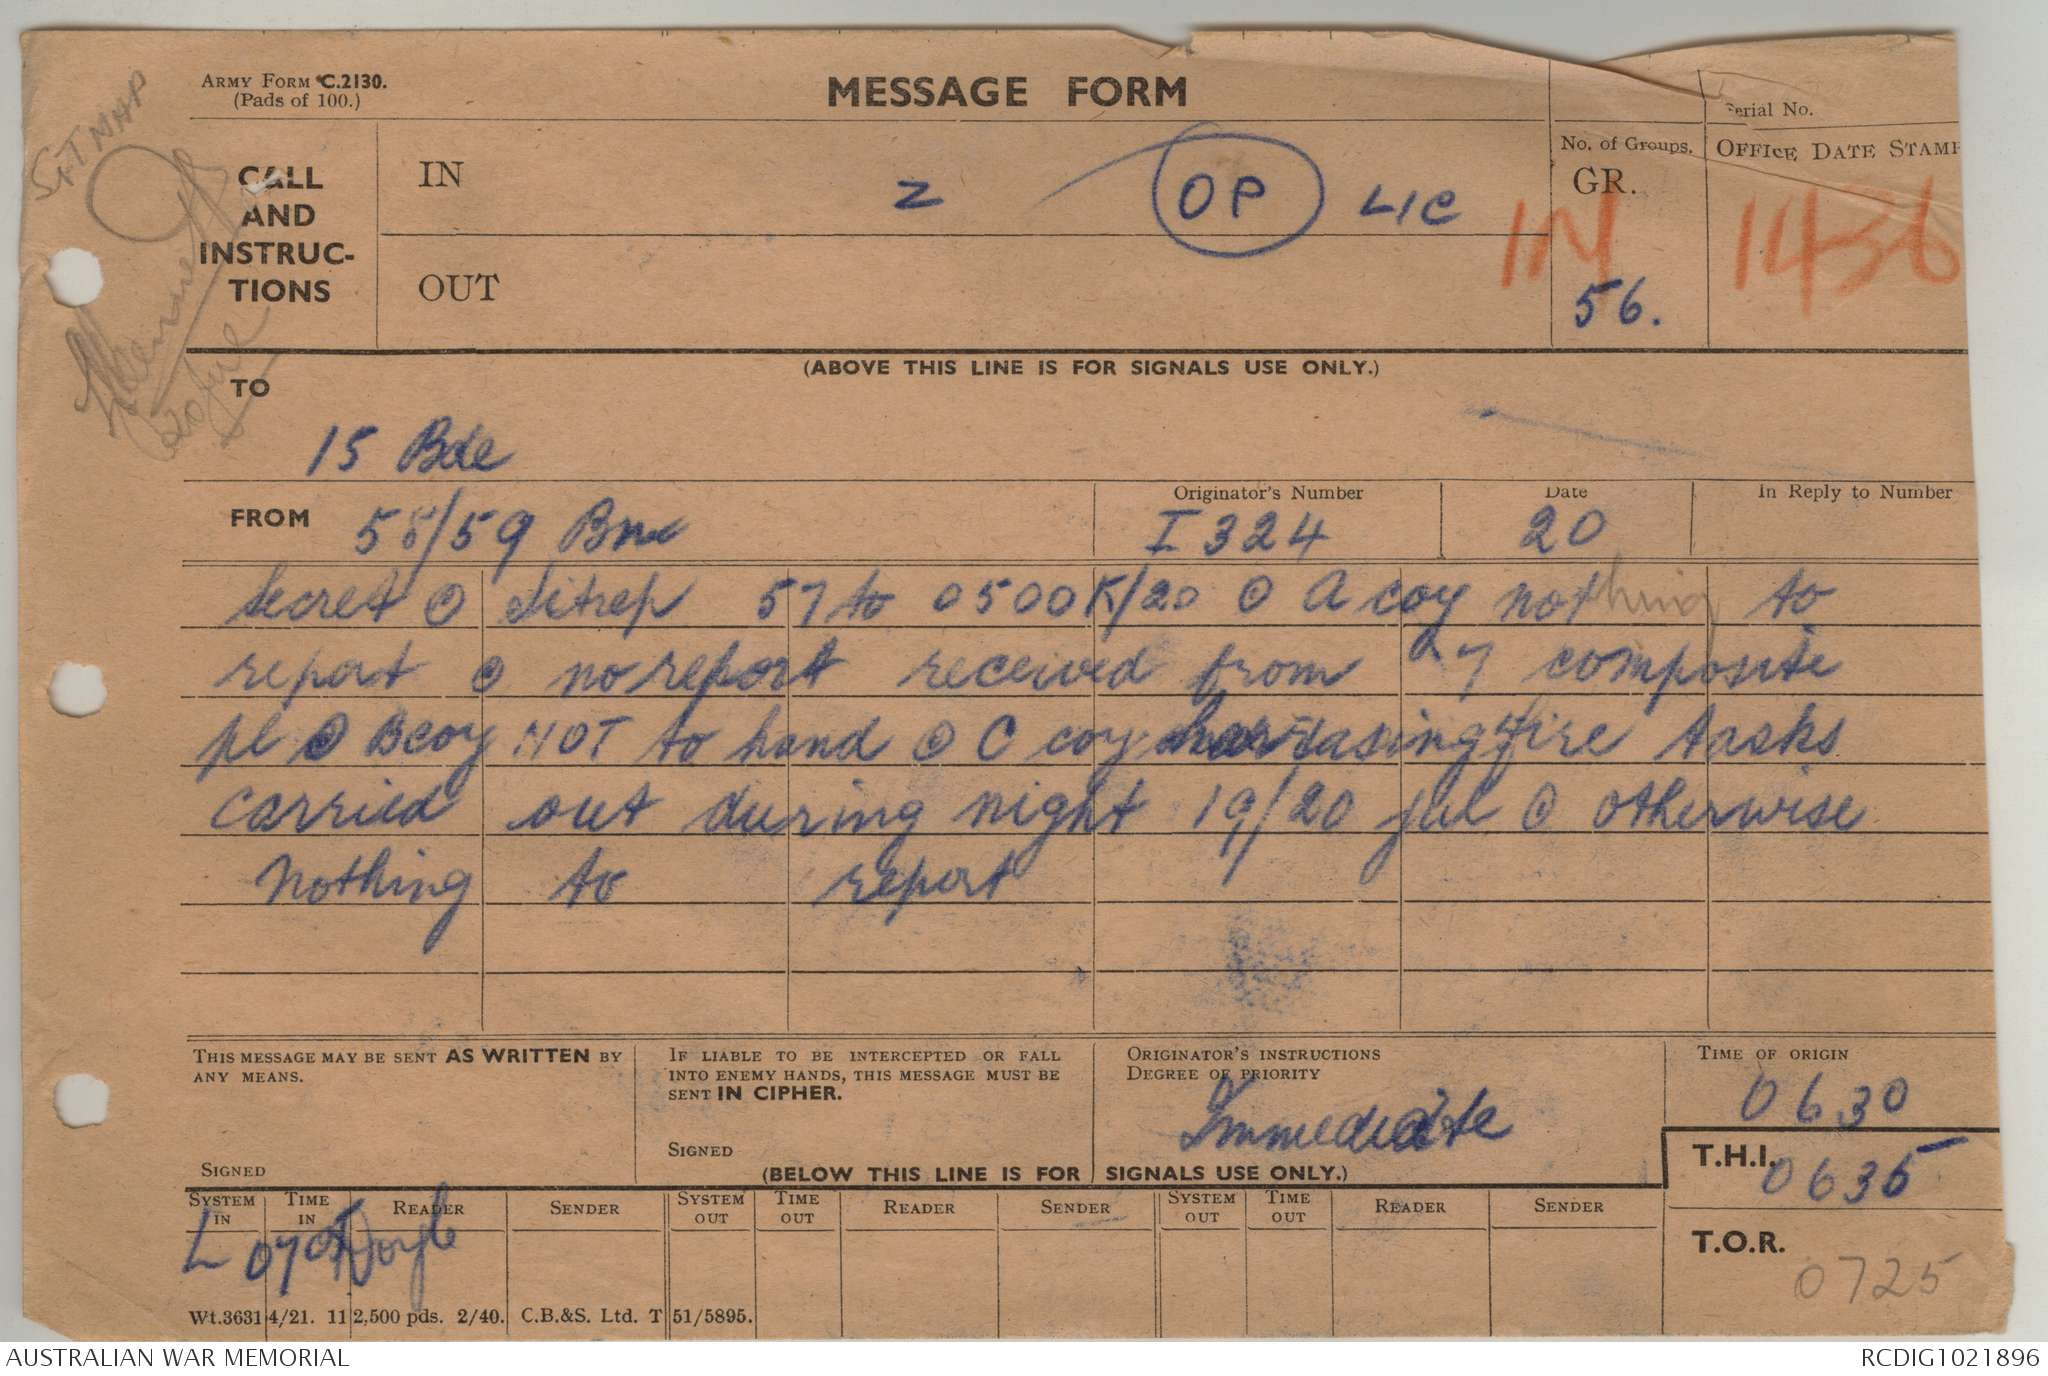 ARMY FORM C.2130.
(Pads of 100.)
MESSAGE FORM
Serial No.
SIT MAP
CALL
AND
INSTRUC-
TIONS
IN
Z OP LIC
No. of Groups.
GR.
56.
OFFICE DATE STAMP
IN 1436
OUT
(ABOVE THIS LINE IS FOR SIGNALS USE ONLY.)
TO
15 Bde
FROM 58/59 Bn
Originator's Number
I 324
Date
20
In Reply to Number
Secret @ Sitrep 57 to 0500K/20 @ A coy nothing to
report @ no report received from 27 composite
pl @ B coy NOT to hand @ C coy harrasing fire tasks
carried out during night 19/20 jul @ otherwise
nothing to report
THIS MESSAGE MAY BE SENT AS WRITTEN BY
ANY MEANS.
SIGNED
IF LIABLE TO BE INTERCEPTED OR FALL
INTO ENEMY HANDS, THIS MESSAGE MUST BE
SENT IN CIPHER.
SIGNED
ORIGINATOR'S INSTRUCTIONS
DEGREE OF PRIORITY
Immediate
TIME OF ORIGIN
0630
(BELOW THIS LINE IS FOR SIGNALS USE ONLY.)
T.H.I.
0635
T.O.R.
0725
SYSTEM IN TIME IN READER SENDER SYSTEM OUT TIME OUT READER SENDER SYSTEM OUT TIME OUT READER SENDER
L Doyle
Wt.3631 4/21. 11 2,500 pds. 2/40. C.B.&S. Ltd. T 51/5895.
AUSTRALIAN WAR MEMORIAL
RCDIG1021896